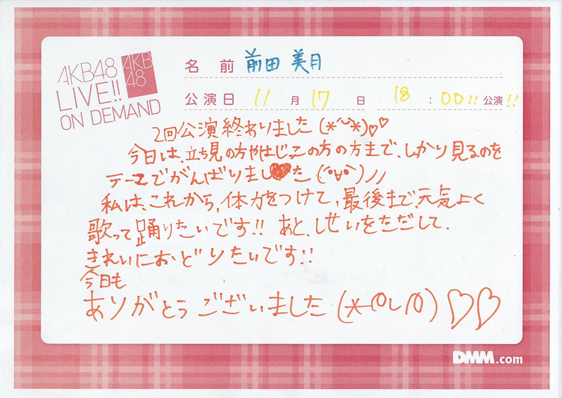 AKB48
LIVE!!
ON DEMAND
AKB
48
名前 前田 美月
公演日 11月17日 18:00!!公演!!
2回公演終わりました(*^^*)♡♡
今日は、立ち見の方やはじっこの方の方まで、しっかり見るのを
テーマでがんばりまし♥た(°∀°)ノノ
私は、これから、体力をつけて、最後まで、元気よく
歌って踊りたいです!! あと、しせいをただして、
きれいにおどりたいです!!
今日も
ありがとうございました(*^し^)♡♡
DMM.com